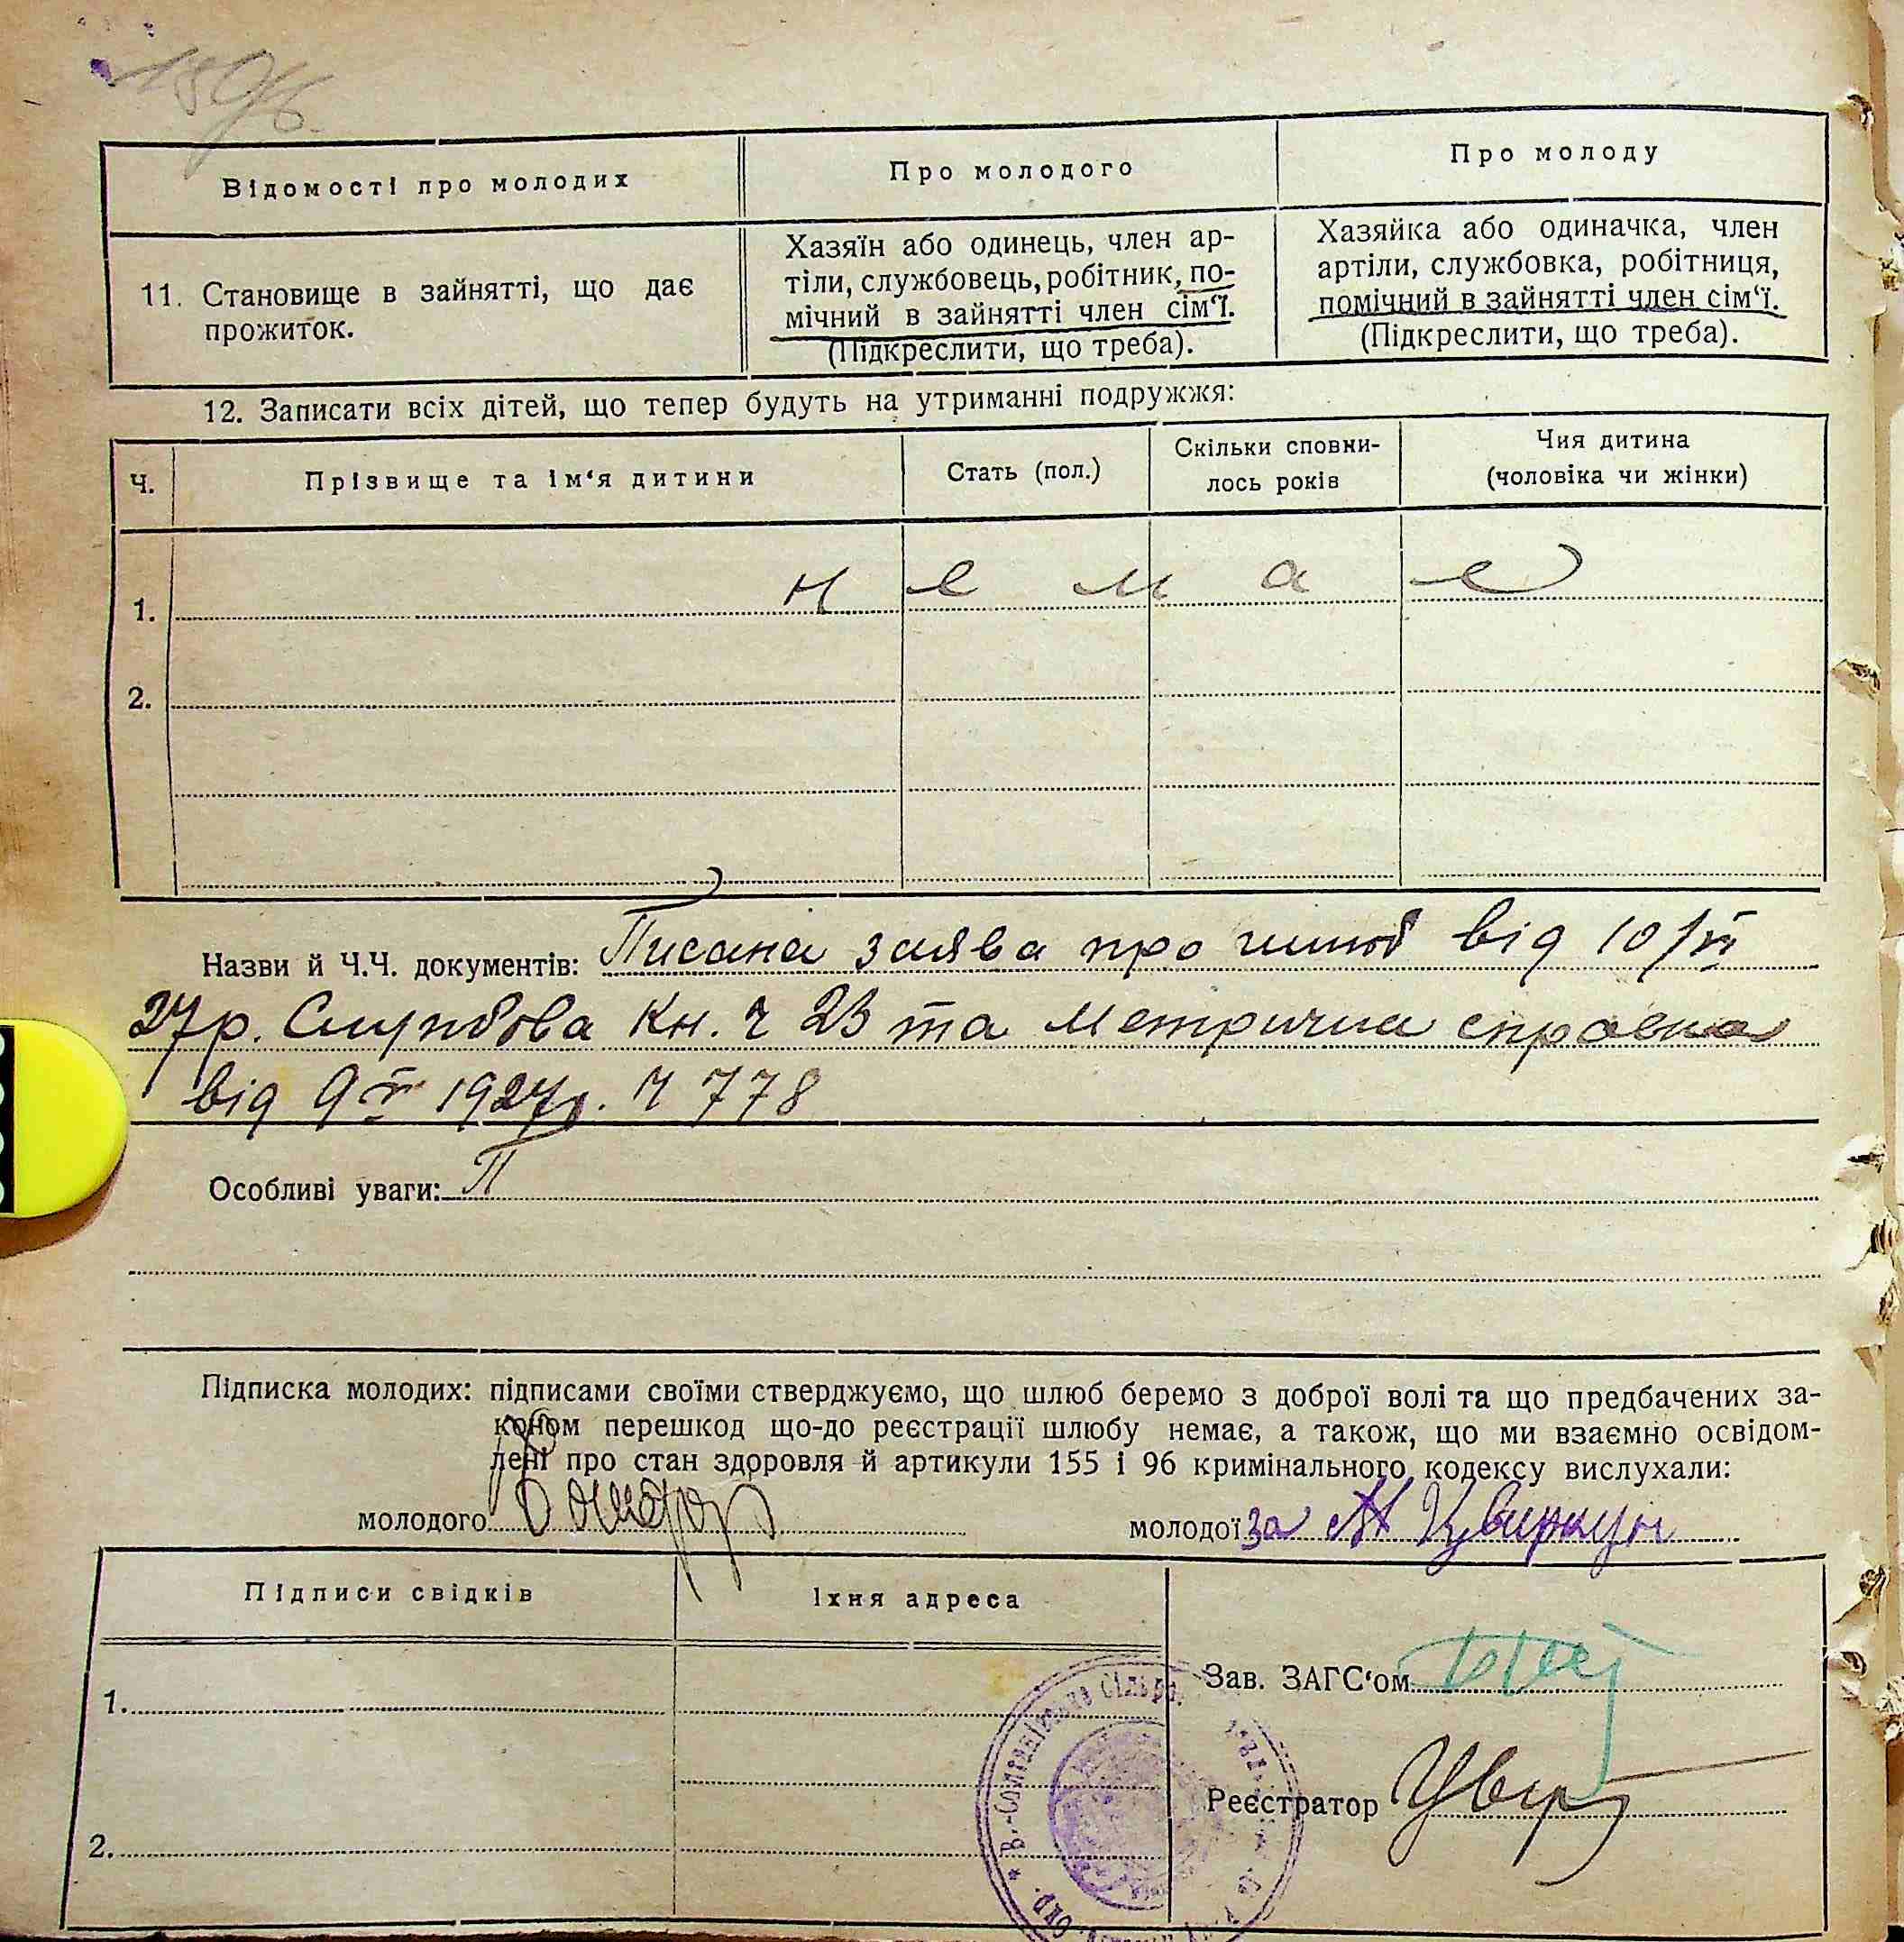 Відомості про молодих
Про молодого
Про молоду
11. Становище в зайнятті, що дає
прожиток.
Хазяїн або одинець, член ар-
тіли, службовець, робітник, по-
мічний в зайнятті член сім‘ї.
(Підкреслити, що треба).
Хазяйка або одиначка, член
артіли, службовка, робітниця,
помічний в зайнятті член сім‘ї.
(Підкреслити, що треба).
12. Записати всіх дітей, що тепер будуть на утриманні подружжя:
Ч.
Прізвище та ім‘я дитини
Стать (пол.)
Скільки сповни-
лось років
Чия дитина
(чоловіка чи жінки)
1.
н е м а є
2.
Назви й Ч.Ч. документів: Писана заява про шлюб від 10/VI
27р. Службова Кн. Ч 23 та Метрична справка
від 9 V 1927р. Ч 778
Особливі уваги: П
Підписка молодих: підписами своїми стверджуємо, що шлюб беремо з доброї волі та що предбачених за-
коном перешкод що-до реєстрації шлюбу немає, а також, що ми взаємно освідом-
лені про стан здоровля й артикули 155 і 96 кримінального кодексу вислухали:
молодого
молодої за Цвиркун
Підписи свідків
Їхня адреса
1.
2.
Зав. ЗАГС‘ом
Реєстратор